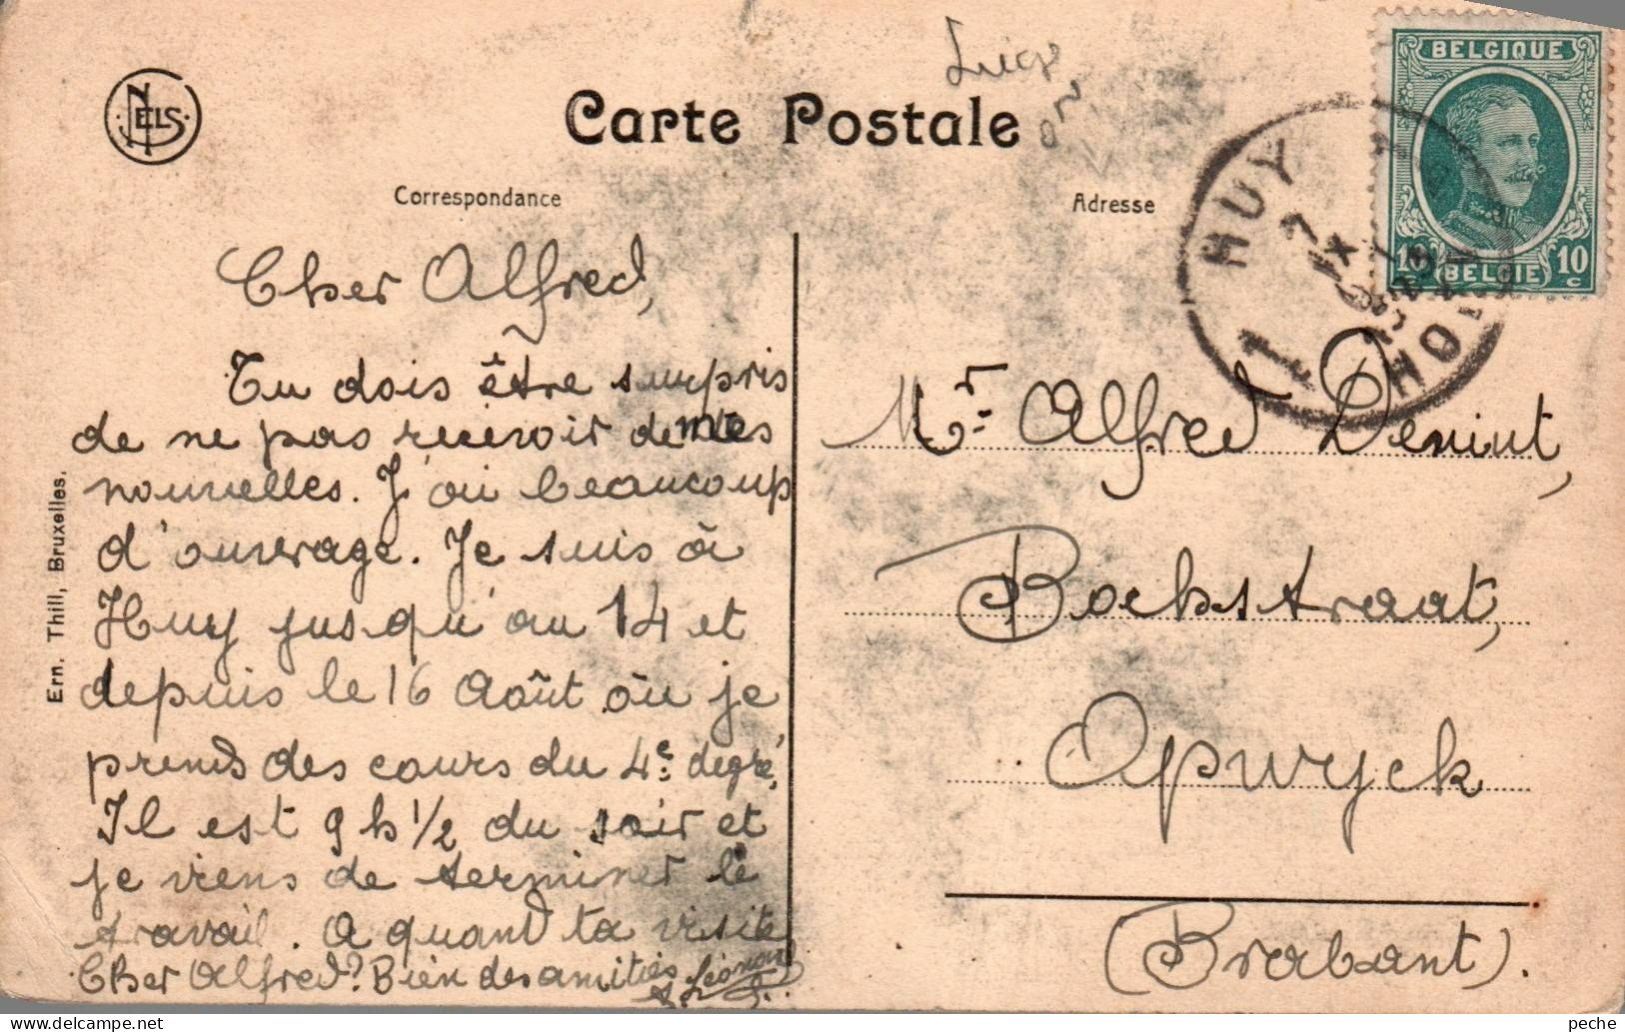 NELS
Carte Postale
Correspondance
Adresse
BELGIQUE
10 BELGIE 10
c
HUY
1
HOEI
Cher Alfred,
Tu dois être surpris
de ne pas recevoir de mes
nouvelles. J'ai beaucoup
d'ouvrage. Je suis à
Huy jusqu'au 14 et
depuis le 16 Août où je
prends des cours du 4e degré.
Il est 9 h 1/2 du soir et
je viens de terminer le
travail. A quand ta visite
Cher Alfred? Bien des amitiés
Mr. Alfred Denint,
Bockstraat,
Opwyck
(Brabant).
Ern. Thill, Bruxelles.
peche